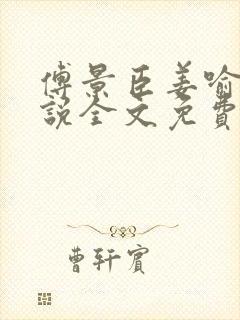 傅景臣姜喻
說全文免費
曹轩賓